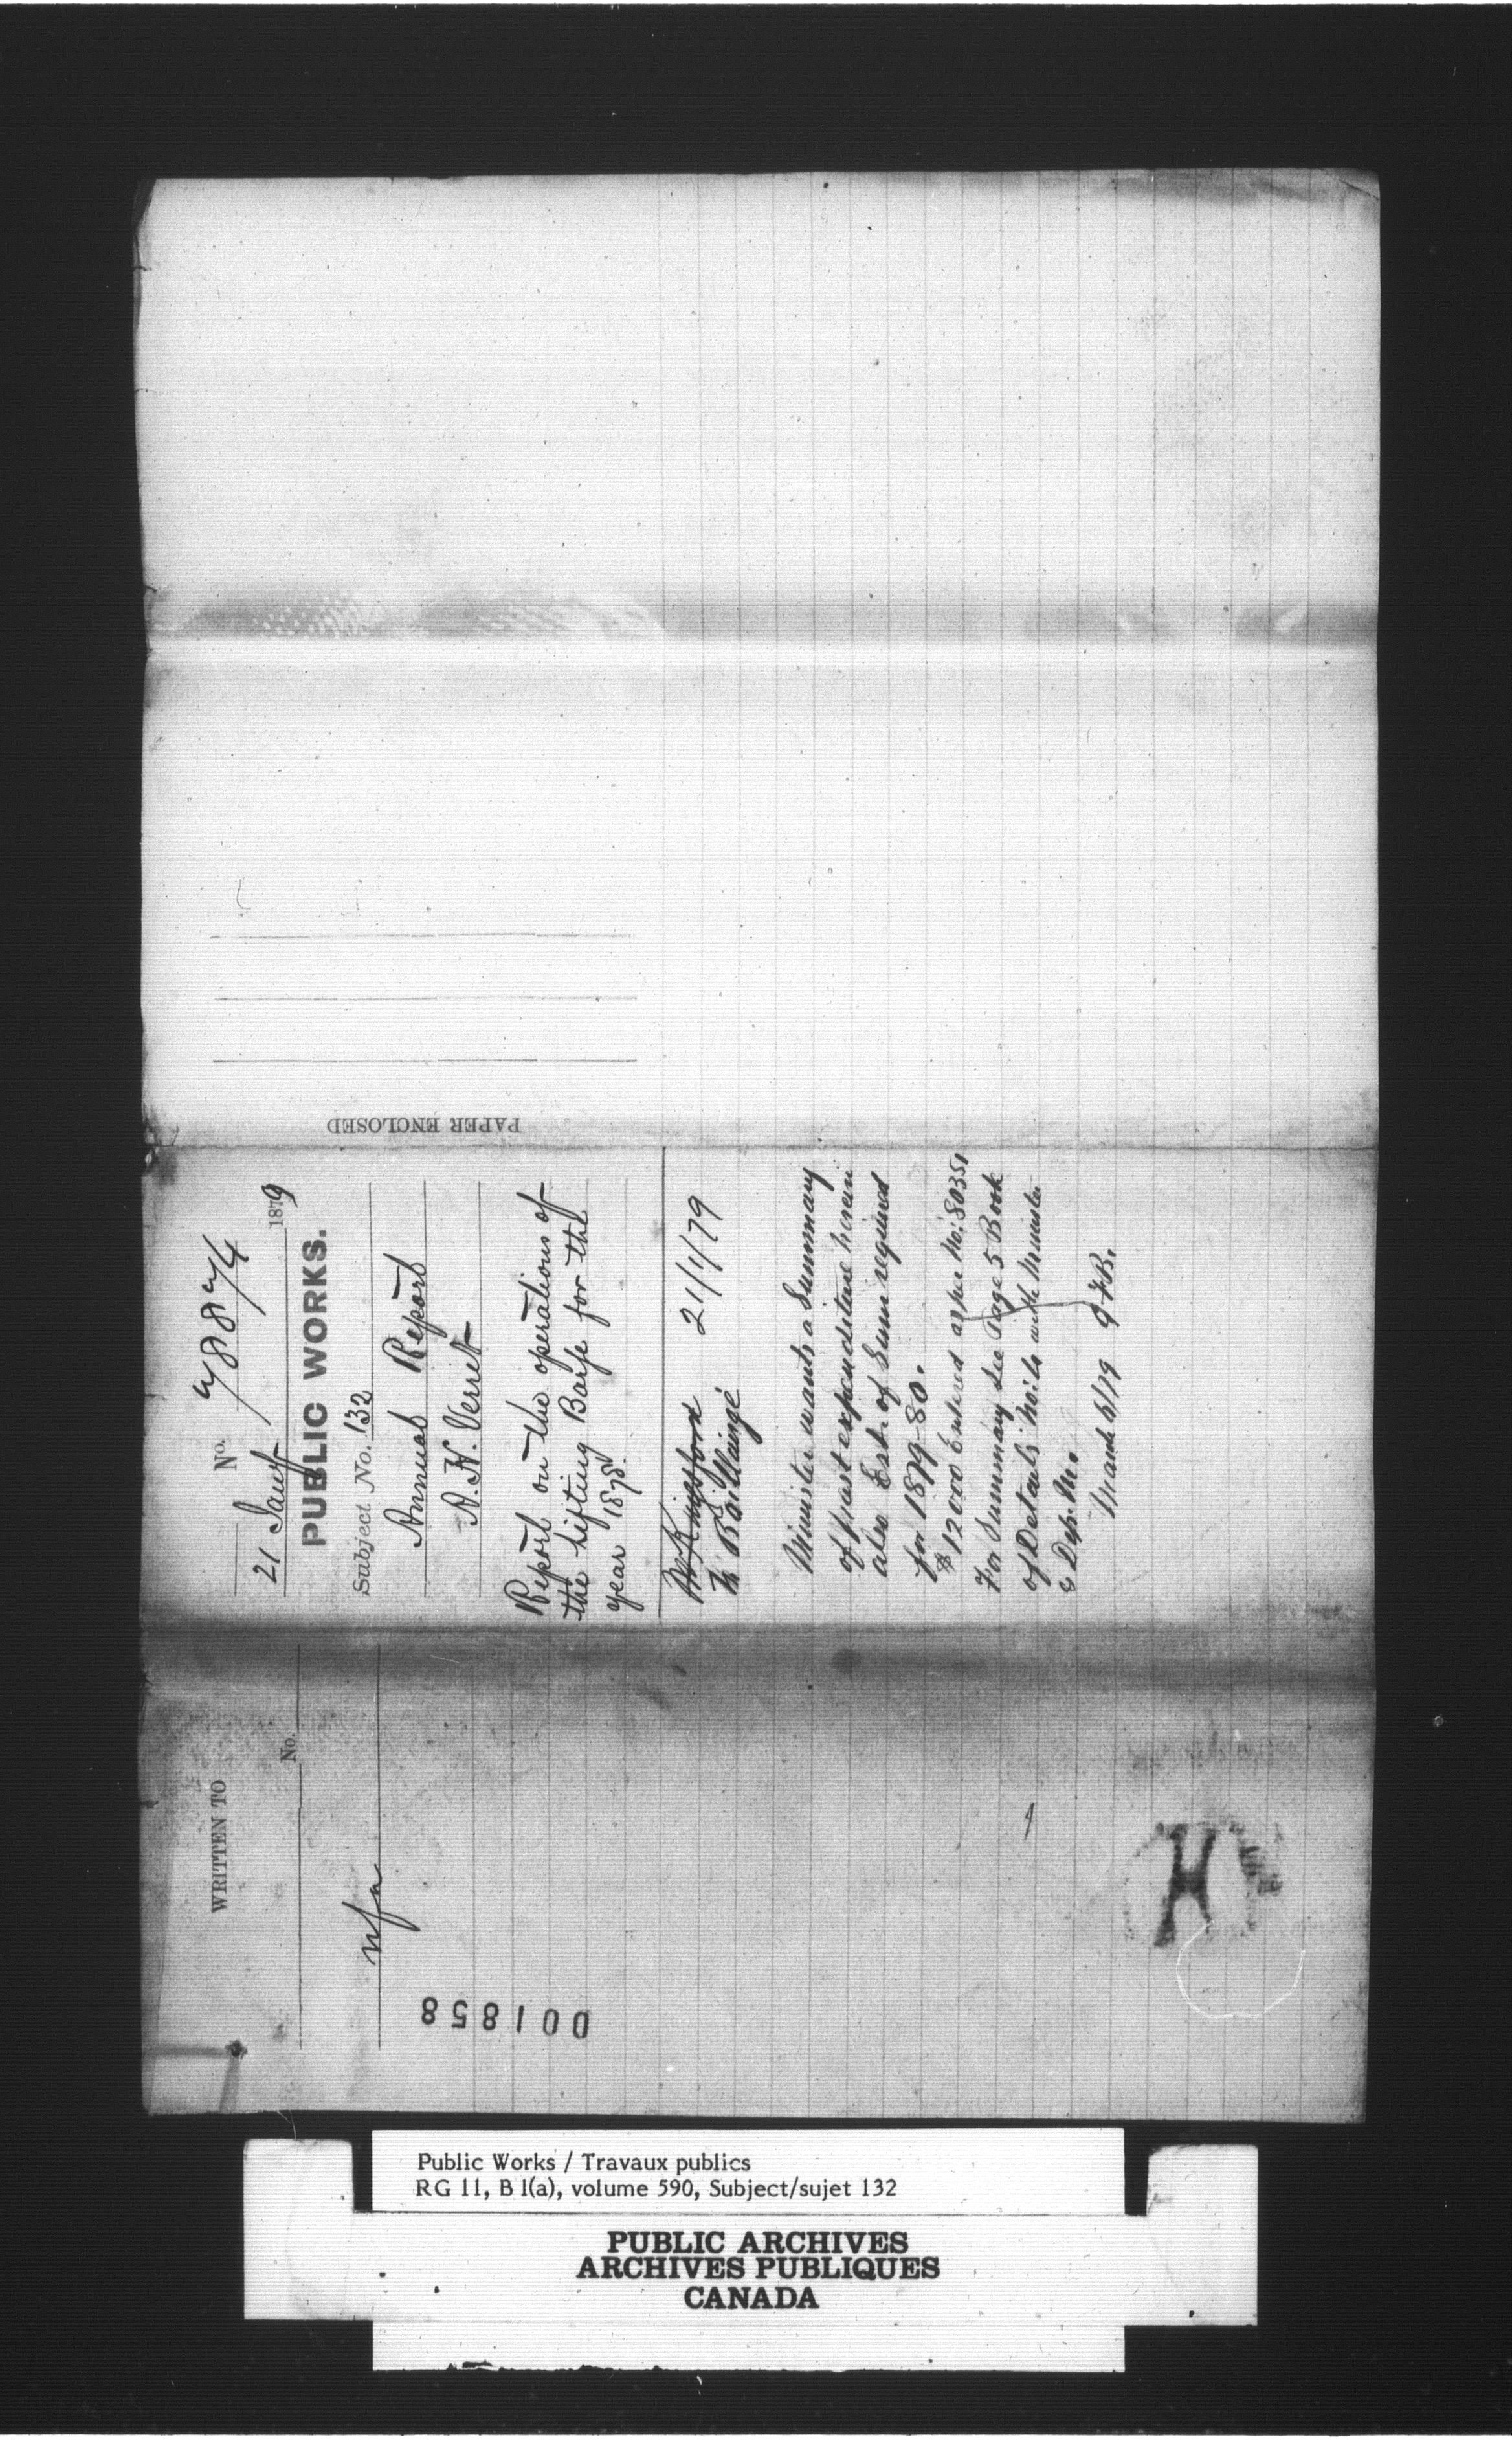 No. 78874
21 Jany 1879
PUBLIC WORKS.
Subject No. 132
Annual Report
A. H. Verret
Report on the operations of
the Lifting Barge for the
year 1878.
Mr Kingsford 21/1/79
Mr Baillairgé
Minister wants a Summary
of past expenditure herein
also Est. of Sum required
for 1879-80.
$12000 Entered as per No: 80351
For Summary See Page 5 Book
of Details No: with Minister
& Dep: M.
March 6/79 G.F.B.
PAPER ENCLOSED
WRITTEN TO
No.
nfa
001858
H
Public Works / Travaux publics
RG 11, B 1(a), volume 590, Subject/sujet 132
PUBLIC ARCHIVES
ARCHIVES PUBLIQUES
CANADA